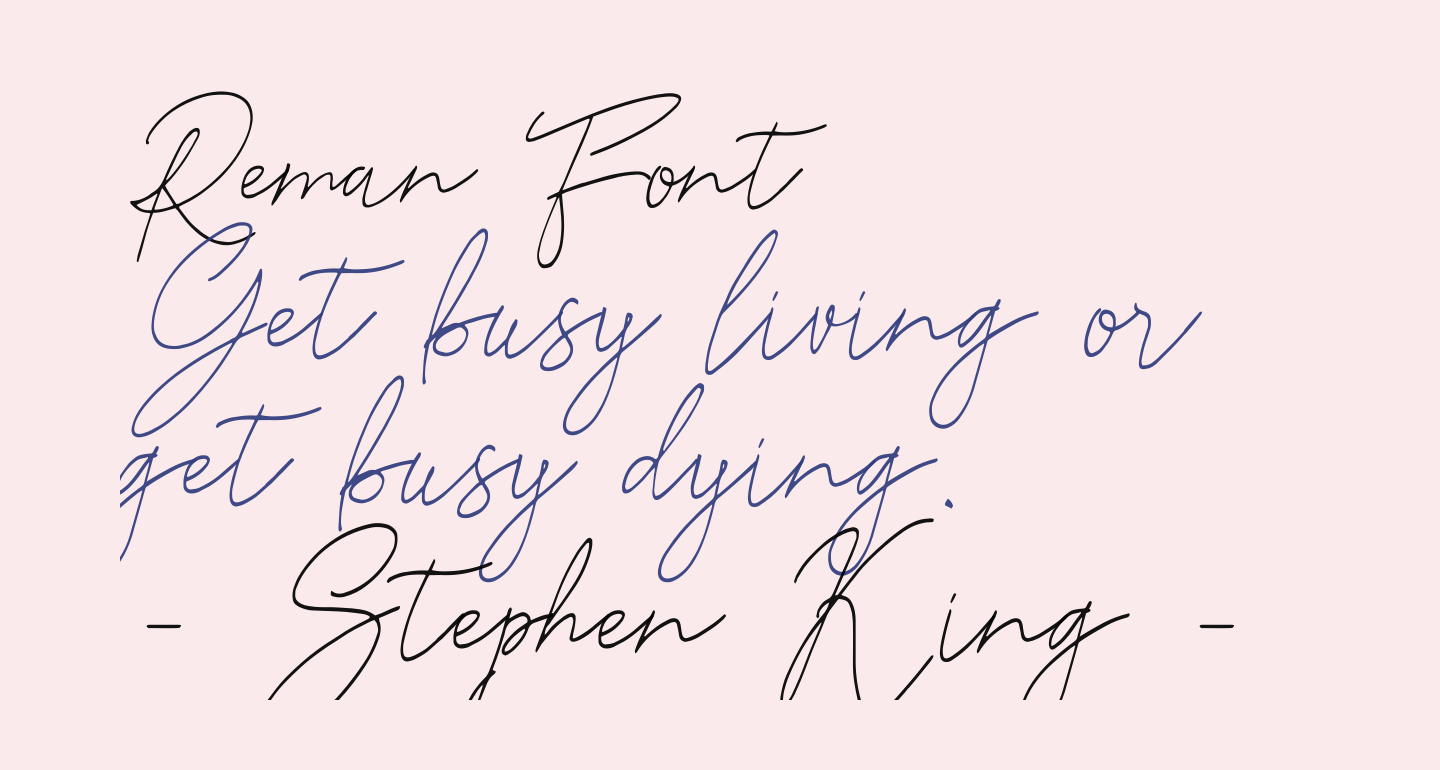 Reman Font
Get busy living or
get busy dying.
- Stephen King -